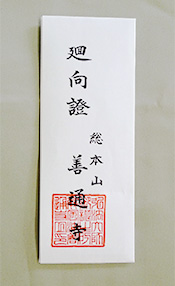 廻向證
総本山
善通寺